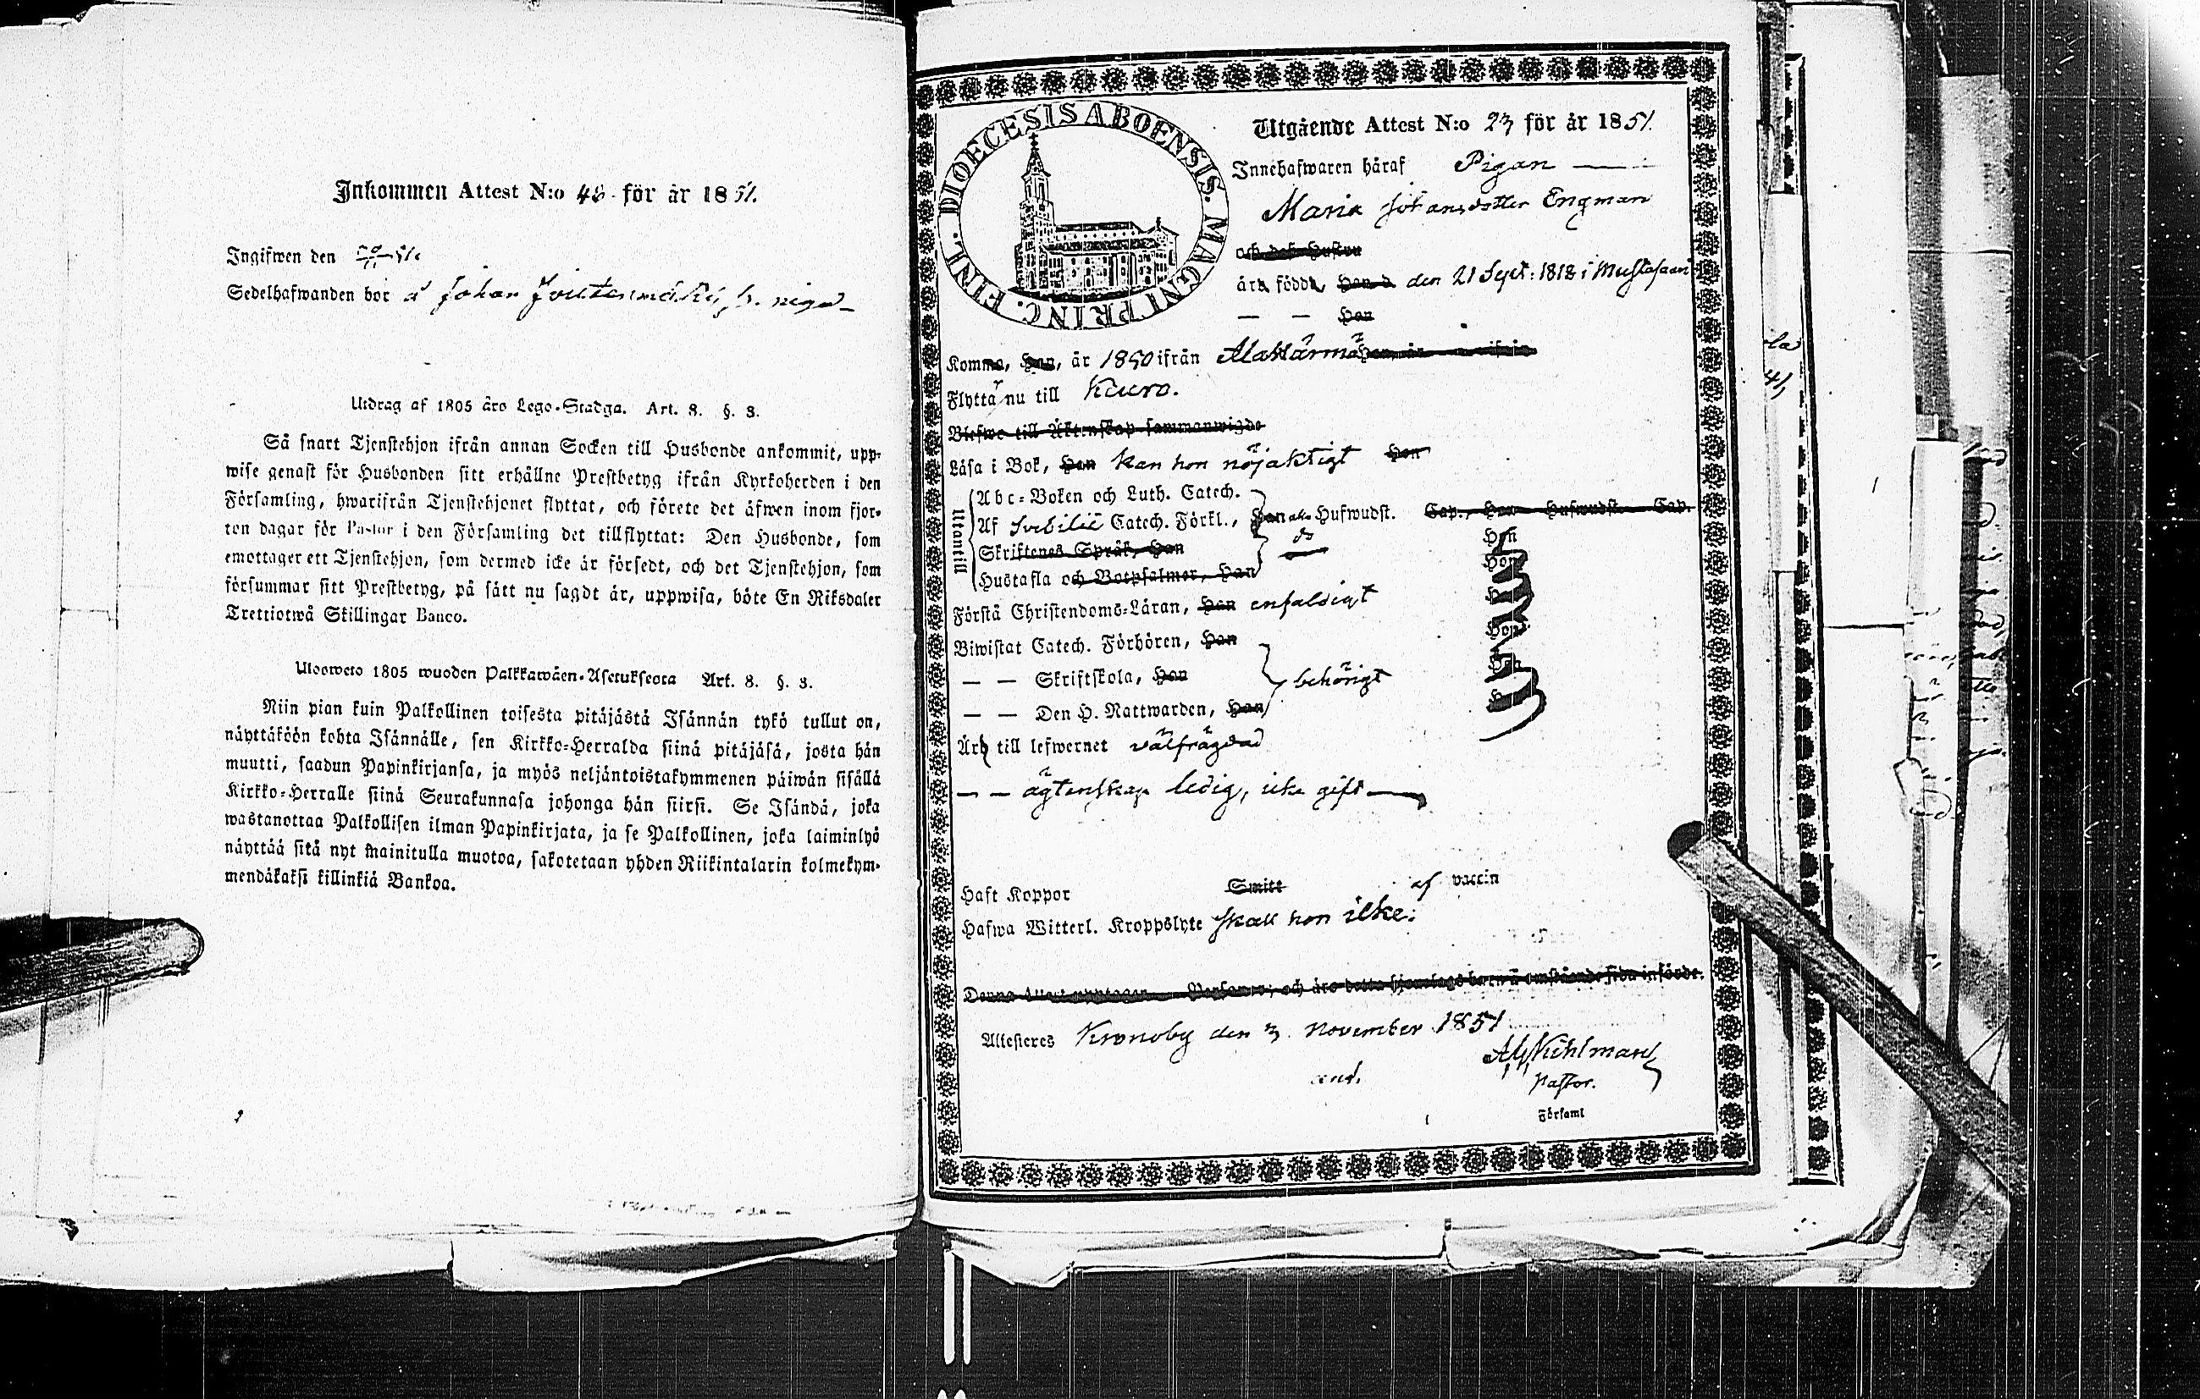 Inkommen Attest N:o 48 för år 1851.
Ingifwen den
Sedelhafwanden bor å Johan
Utdrag af 1805 års Lego-Stadga. Art. 8. §. 3.
Så snart Tjenstehjon ifrån annan Socken till Husbonde ankommit, upp-
wise genast för Husbonden sitt erhållne Prestbetyg ifrån Kyrkoherden i den
Församling, hwarifrån Tjenstehjonet flyttat, och förete det äfwen inom fjor-
ton dagar för Pastor i den Församling det tillflyttat: Den Husbonde, som
emottager ett Tjenstehjon, som dermed icke är försedt, och det Tjenstehjon, som
försummar sitt Prestbetyg, på sätt nu sagdt är, uppwisa, böte En Riksdaler
Trettiotwå Skillingar Banco.
Ulosweto 1805 wuoden Palkkawäen-Asetuksesta Art. 8. §. 3.
Niin pian kuin Palkollinen toisesta pitäjästä Isännän tykö tullut on,
näyttäköön kohta Isännälle, sen Kirkko-Herralda siinä pitäjäsä, josta hän
muutti, saadun Papinkirjansa, ja myös neljäntoistakymmenen päiwän sisällä
Kirkko-Herralle siinä Seurakunnasa johonga hän siirsi. Se Isändä, joka
wastanottaa Palkollisen ilman Papinkirjata, ja se Palkollinen, joka laiminlyö
näyttää sitä nyt mainitulla muotoa, sakotetaan yhden Riikintalarin kolmekym-
mendäkaksi killinkiä Bankoa.
DIOECESIS ABOENSIS. MAGNI PRINC. FINL.
Utgående Attest N:o 23 för år 1851.
Innehafwaren häraf Pigan
Maria Johansdotter Engman
och dess Hustru
är född, Han d. den 21 Sept: 1818 i Mustasaari
— — Hon
Komme, Han, år 1850 ifrån Alakärmä
Flyttar nu till Kauro.
Blefwo till Äktenskap sammanwigde
Läsa i Bok, Han kan hon nöjaktigt Hon
Utantill
Abc-Boken och Luth. Catech.
Af Svebilii Catech. Förkl., Han alla Hufwudst. Cap., Hon Hufwudst. Cap.
Skriftenes Språk, Han do Hon
Hustafla och Botpsalmer, Han Hon
Förstå Christendoms-Läran, Han enfaldigt
Biwistat Catech. Förhören, Han Hon
— — Skriftskola, Han behörigt
— — Den H. Nattwarden, Han
Är till lefwernet välfrägdad
— — ägtenskap ledig, icke gift
Haft Koppor Smitt af vaccin
Hafwa Witterl. Kroppslyte skall hon icke:
Attesteres Kronoby den 3 November 1851
Kihlman
Pastor.
Församl